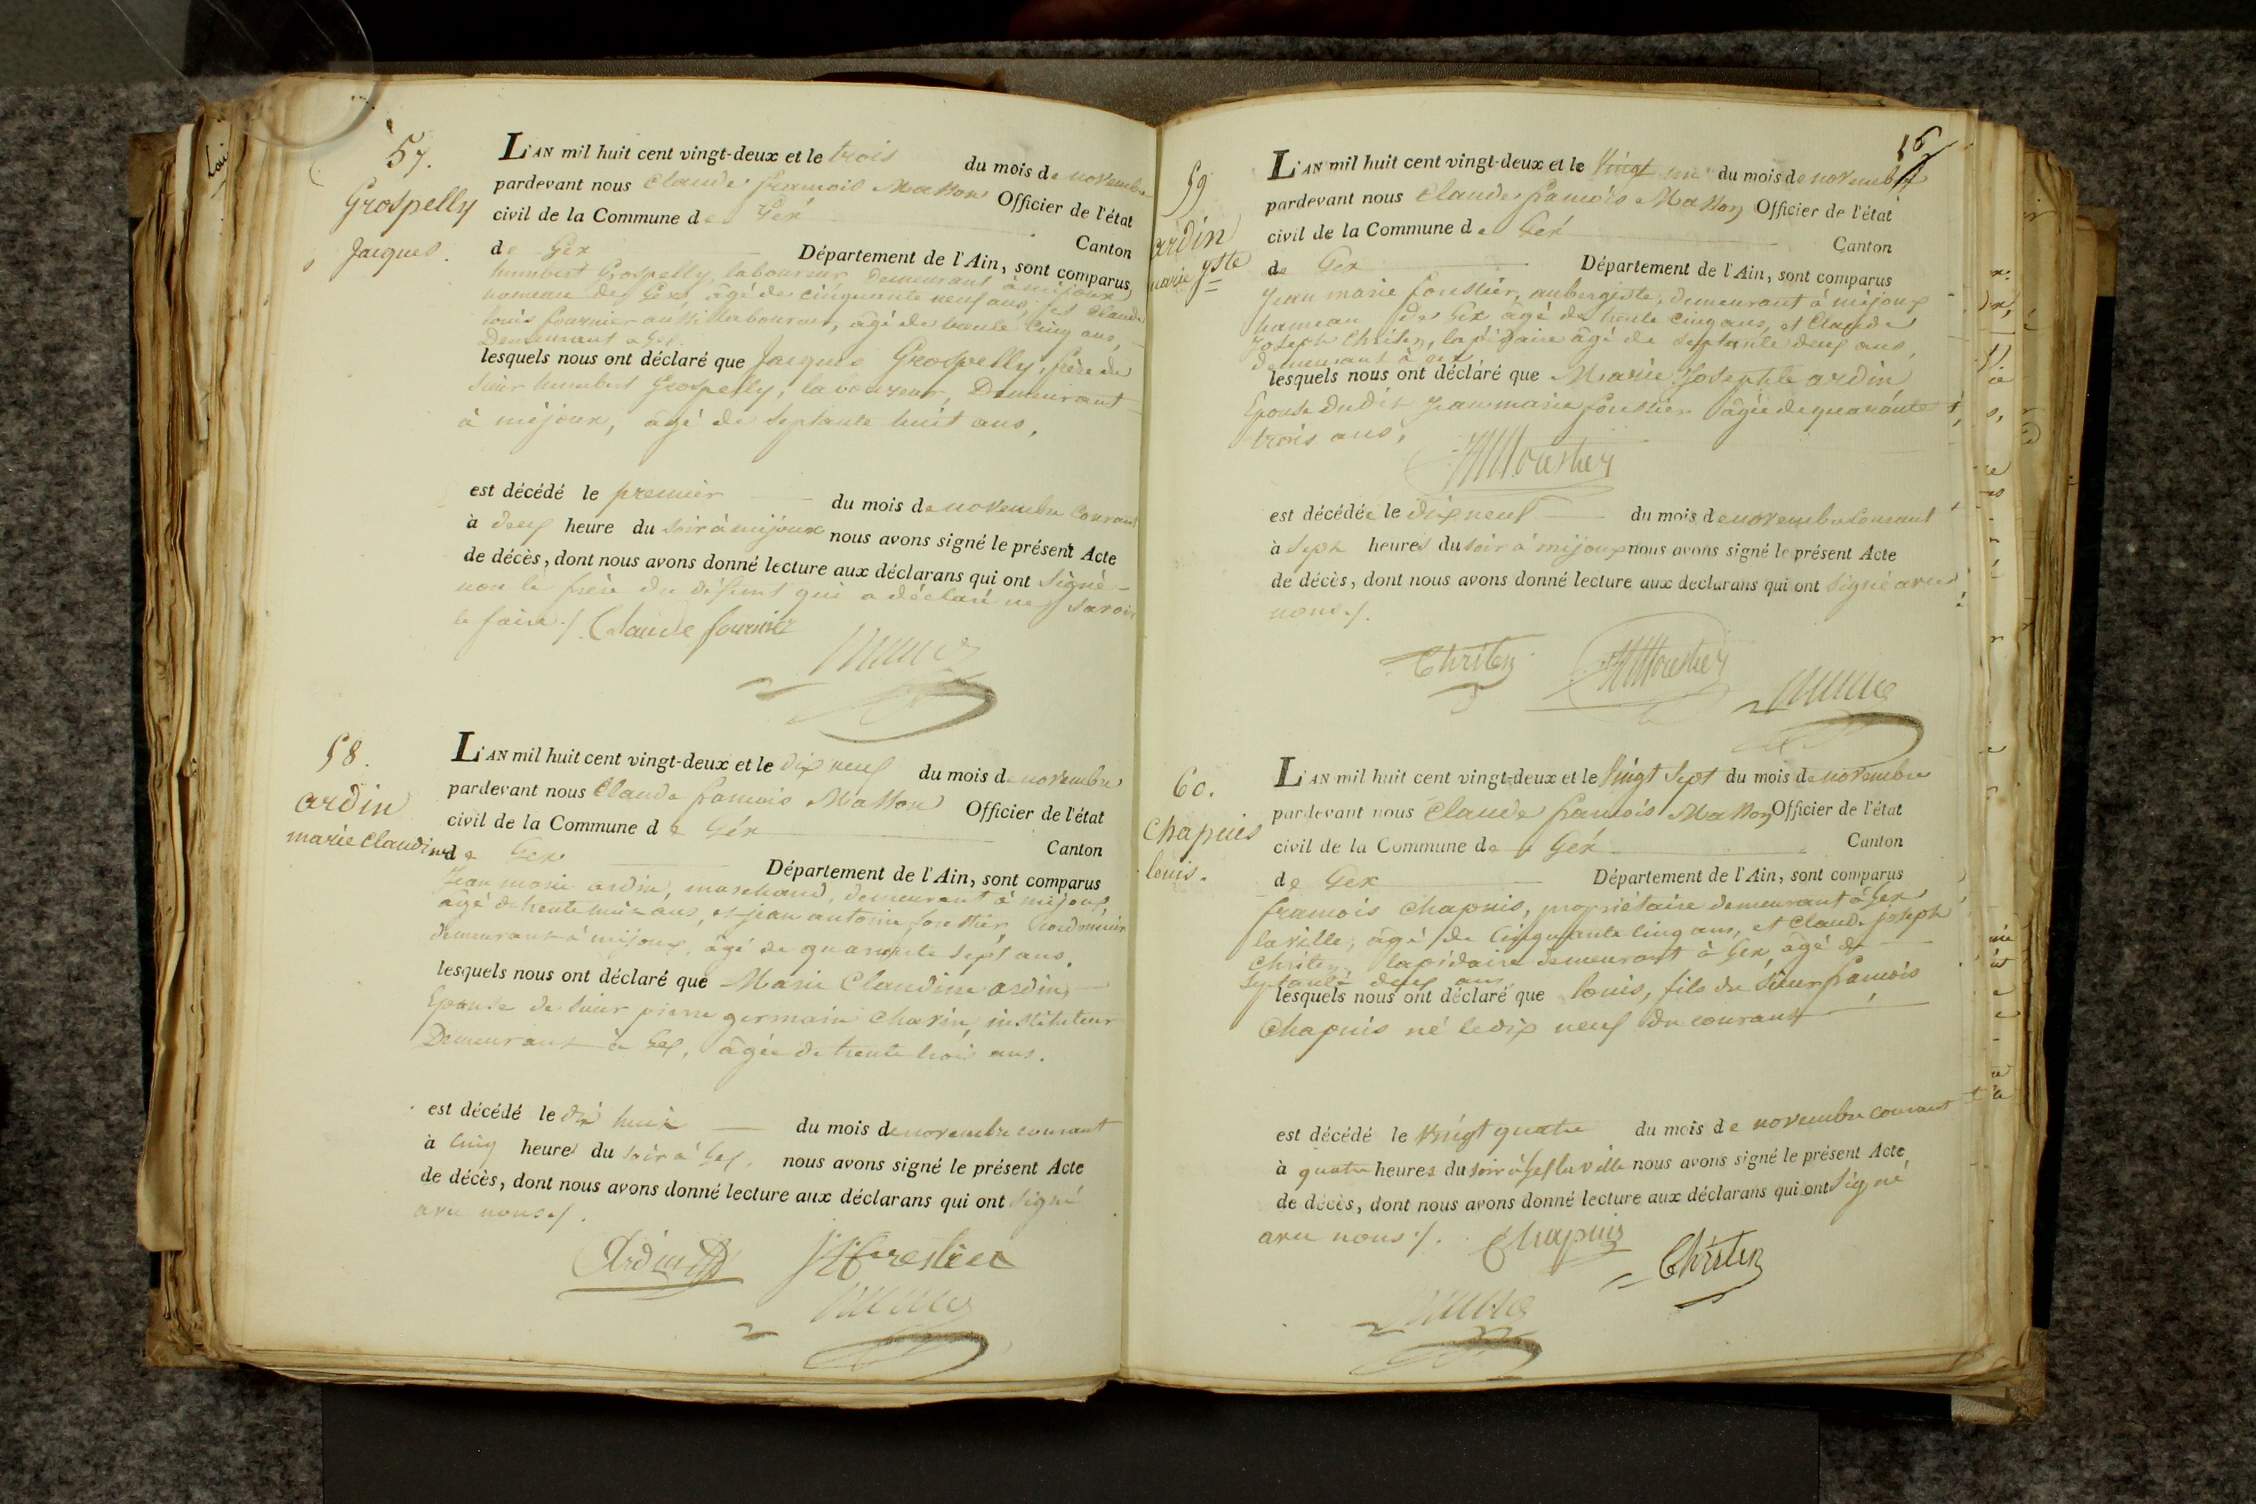 57.
Grospelly
Jacques.
L'AN mil huit cent vingt-deux et le trois du mois de novembre
pardevant nous Claude françois Masson Officier de l'état
civil de la Commune de Gex Canton
de Gex Département de l'Ain, sont comparus
humbert Grospelly, laboureur demeurant à mijoux,
hameau de Gex, âgé de cinquante neuf ans, et Claude
louis fournier aussi laboureur, âgé de trente cinq ans,
Demeurant à Gex.
lesquels nous ont déclaré que Jacques Grospelly, frère du
sieur humbert Grospelly, laboureur, Demeurant
à mijoux, âgé de septante huit ans,
est décédé le premier du mois de novembre courant
à deux heure du soir à mijoux nous avons signé le présent Acte
de décès, dont nous avons donné lecture aux déclarans qui ont signé
non le frère du défunt qui a déclaré ne savoir
le faire ./. Claude fournier
58.
ardin
marie Claudine
L'AN mil huit cent vingt-deux et le dix neuf du mois de novembre
pardevant nous Claude françois Masson Officier de l'état
civil de la Commune de Géx Canton
de Gex Département de l'Ain, sont comparus
Jean marie ardin, marchand, demeurant à mijoux,
âgé de trente huit ans, et jean antoine forestier,
demeurant à mijoux, âgé de quarante sept ans.
lesquels nous ont déclaré que Marie Claudine ardin,
Epouse de sieur pierre germain Chavin, instituteur
Demeurant à Gex, âgée de trente trois ans.
est décédé le dix huit du mois de novembre courant
à cinq heures du soir à Gex. nous avons signé le présent Acte
de décès, dont nous avons donné lecture aux déclarans qui ont signé
avec nous ./.
Ardin JA forestier
16
59
ardin
marie jste
L'AN mil huit cent vingt-deux et le vingt un du mois de novembre
pardevant nous Claude françois Masson Officier de l'état
civil de la Commune de Gex Canton
de Gex Département de l'Ain, sont comparus
Jean marie forestier, aubergiste, demeurant à mijoux
hameau de Gex âgé de trente cinq ans, et Claude
Joseph Christen, lapidaire âgé de septante deux ans,
demeurant à Gex
lesquels nous ont déclaré que Marie Josephte ardin
Epouse dudit Jean marie forestier âgée de quarante
trois ans,
est décédée le dix neuf du mois de novembre courant
à sept heures du soir à mijoux nous avons signé le présent Acte
de décès, dont nous avons donné lecture aux declarans qui ont signé avec
nous ./.
Christen
60.
Chapuis
louis.
L'AN mil huit cent vingt-deux et le vingt sept du mois de novembre
pardevant nous Claude françois Masson Officier de l'état
civil de la Commune de Géx Canton
de Gex Département de l'Ain, sont comparus
françois Chapuis, propriétaire demeurant à Gex
la ville, âgé de Cinquante cinq ans, et Claude joseph
Christen, lapidaire demeurant à Gex, âgé de
septante deux ans,
lesquels nous ont déclaré que louis, fils du sieur françois
Chapuis né le dix neuf du courant
est décédé le vingt quatre du mois de novembre courant
à quatre heures du soir à Gex la ville nous avons signé le présent Acte
de décès, dont nous avons donné lecture aux déclarans qui ont signé
avec nous ./. Chapuis
Christen